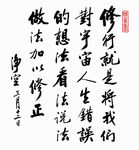 修行就是將我們
對宇宙人生錯誤
的想法看法說法
做法加以修正
淨空
二月十二日